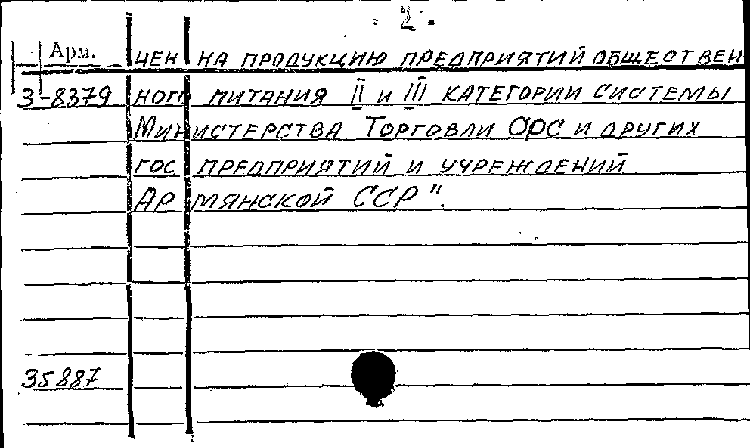 - 2 -
Арм. ЦЕН НА ПРОДУКЦИЮ ПРЕДПРИЯТИЙ ОБЩЕСТВЕН
3-8379 НОГО ПИТАНИЯ II И III КАТЕГОРИИ СИСТЕМЫ
МИНИСТЕРСТВА ТОРГОВЛИ ОРС И ДРУГИХ
ГОС ПРЕДПРИЯТИЙ И УЧРЕЖДЕНИЙ
АРМЯНСКОЙ ССР".
35887